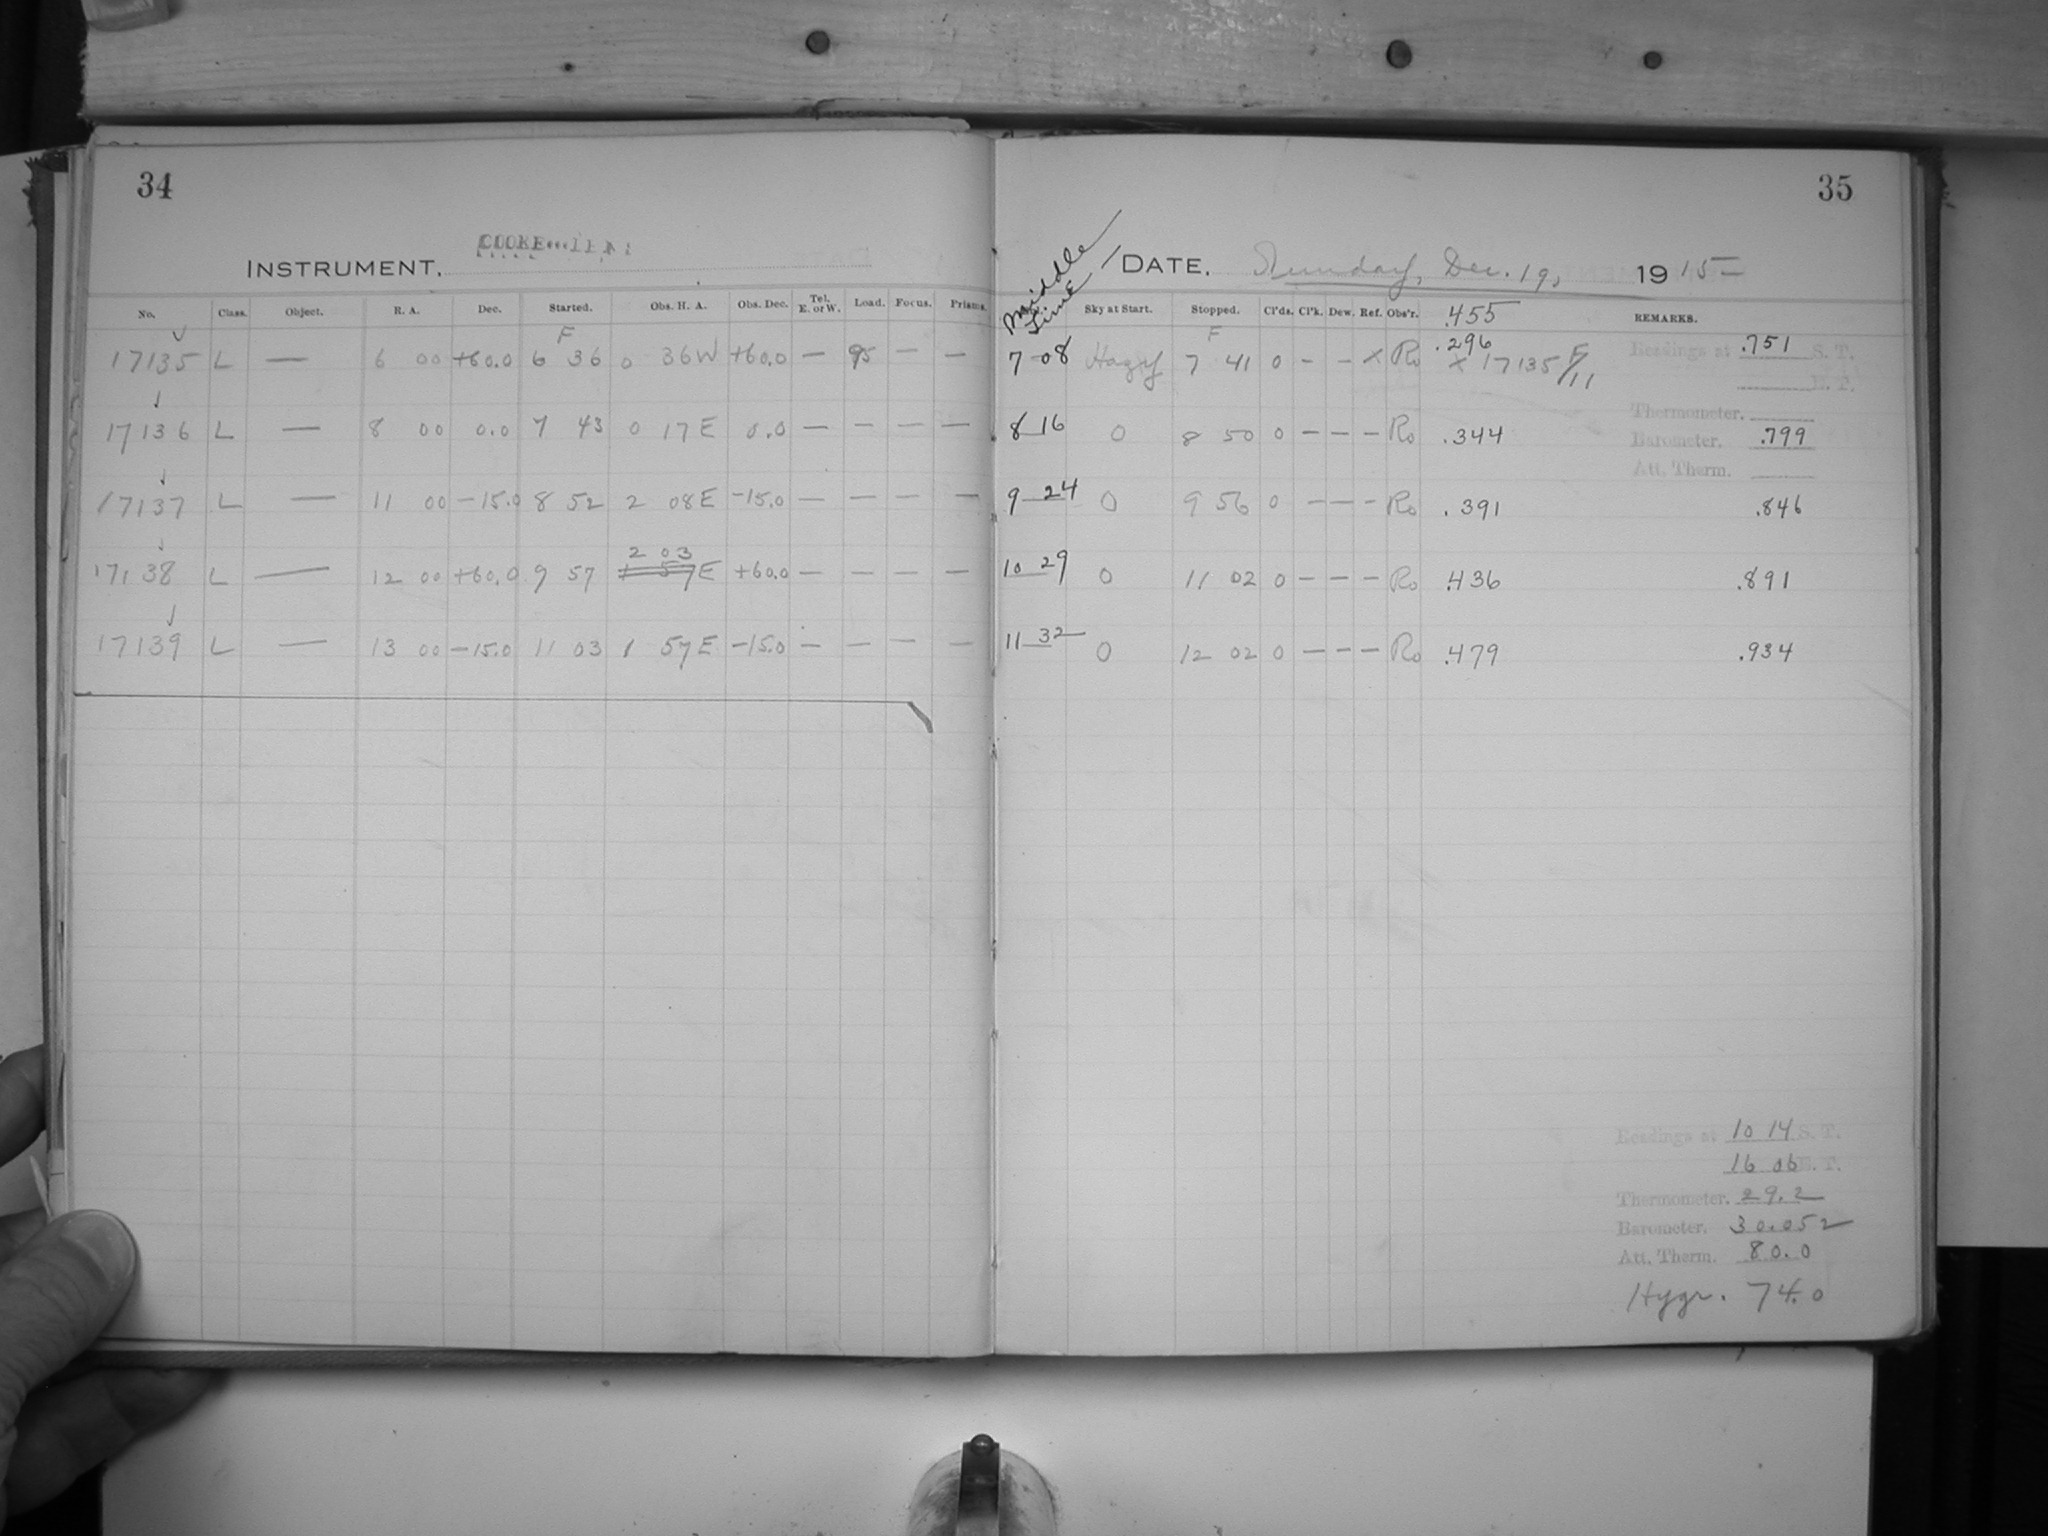 34
INSTRUMENT.
No. Class. Object. R. A. Dec. Started. Obs. H. A. Obs. Dec. Tel. E. or W. Load. Focus. Prisms.
F
17135 L — 6 00 +60.0 6 36 0 36W +60.0 — 95 — —
17136 L — 8 00 0.0 7 43 0 17E 0.0 — — — —
17137 L — 11 00 -15.0 8 52 2 08E -15.0 — — — —
2 03
17138 L — 12 00 +60.0 9 57 1 57E +60.0 — — — —
17139 L — 13 00 -15.0 11 03 1 57E -15.0 — — — —
35
Middle Time
DATE. Sunday, Dec. 19, 1915
Sky at Start. Stopped. Cl'ds. Cl'k. Dew. Ref. Obs'r. .455 REMARKS.
F
.296 Readings at .751 S. T.
7 08 Hazy 7 41 0 - - X Ro X 17135 F/11
Thermometer.
8 16 0 8 50 0 - - - Ro .344 Barometer. .799
Att. Therm.
9 24 0 9 56 0 - - - Ro .391 .846
10 29 0 11 02 0 - - - Ro .436 .891
11 32 0 12 02 0 - - - Ro .479 .934
Readings at 10 14 S. T.
16 06 E. T.
Thermometer. 29.2
Barometer. 30.052
Att. Therm. 80.0
Hygr. 74.0